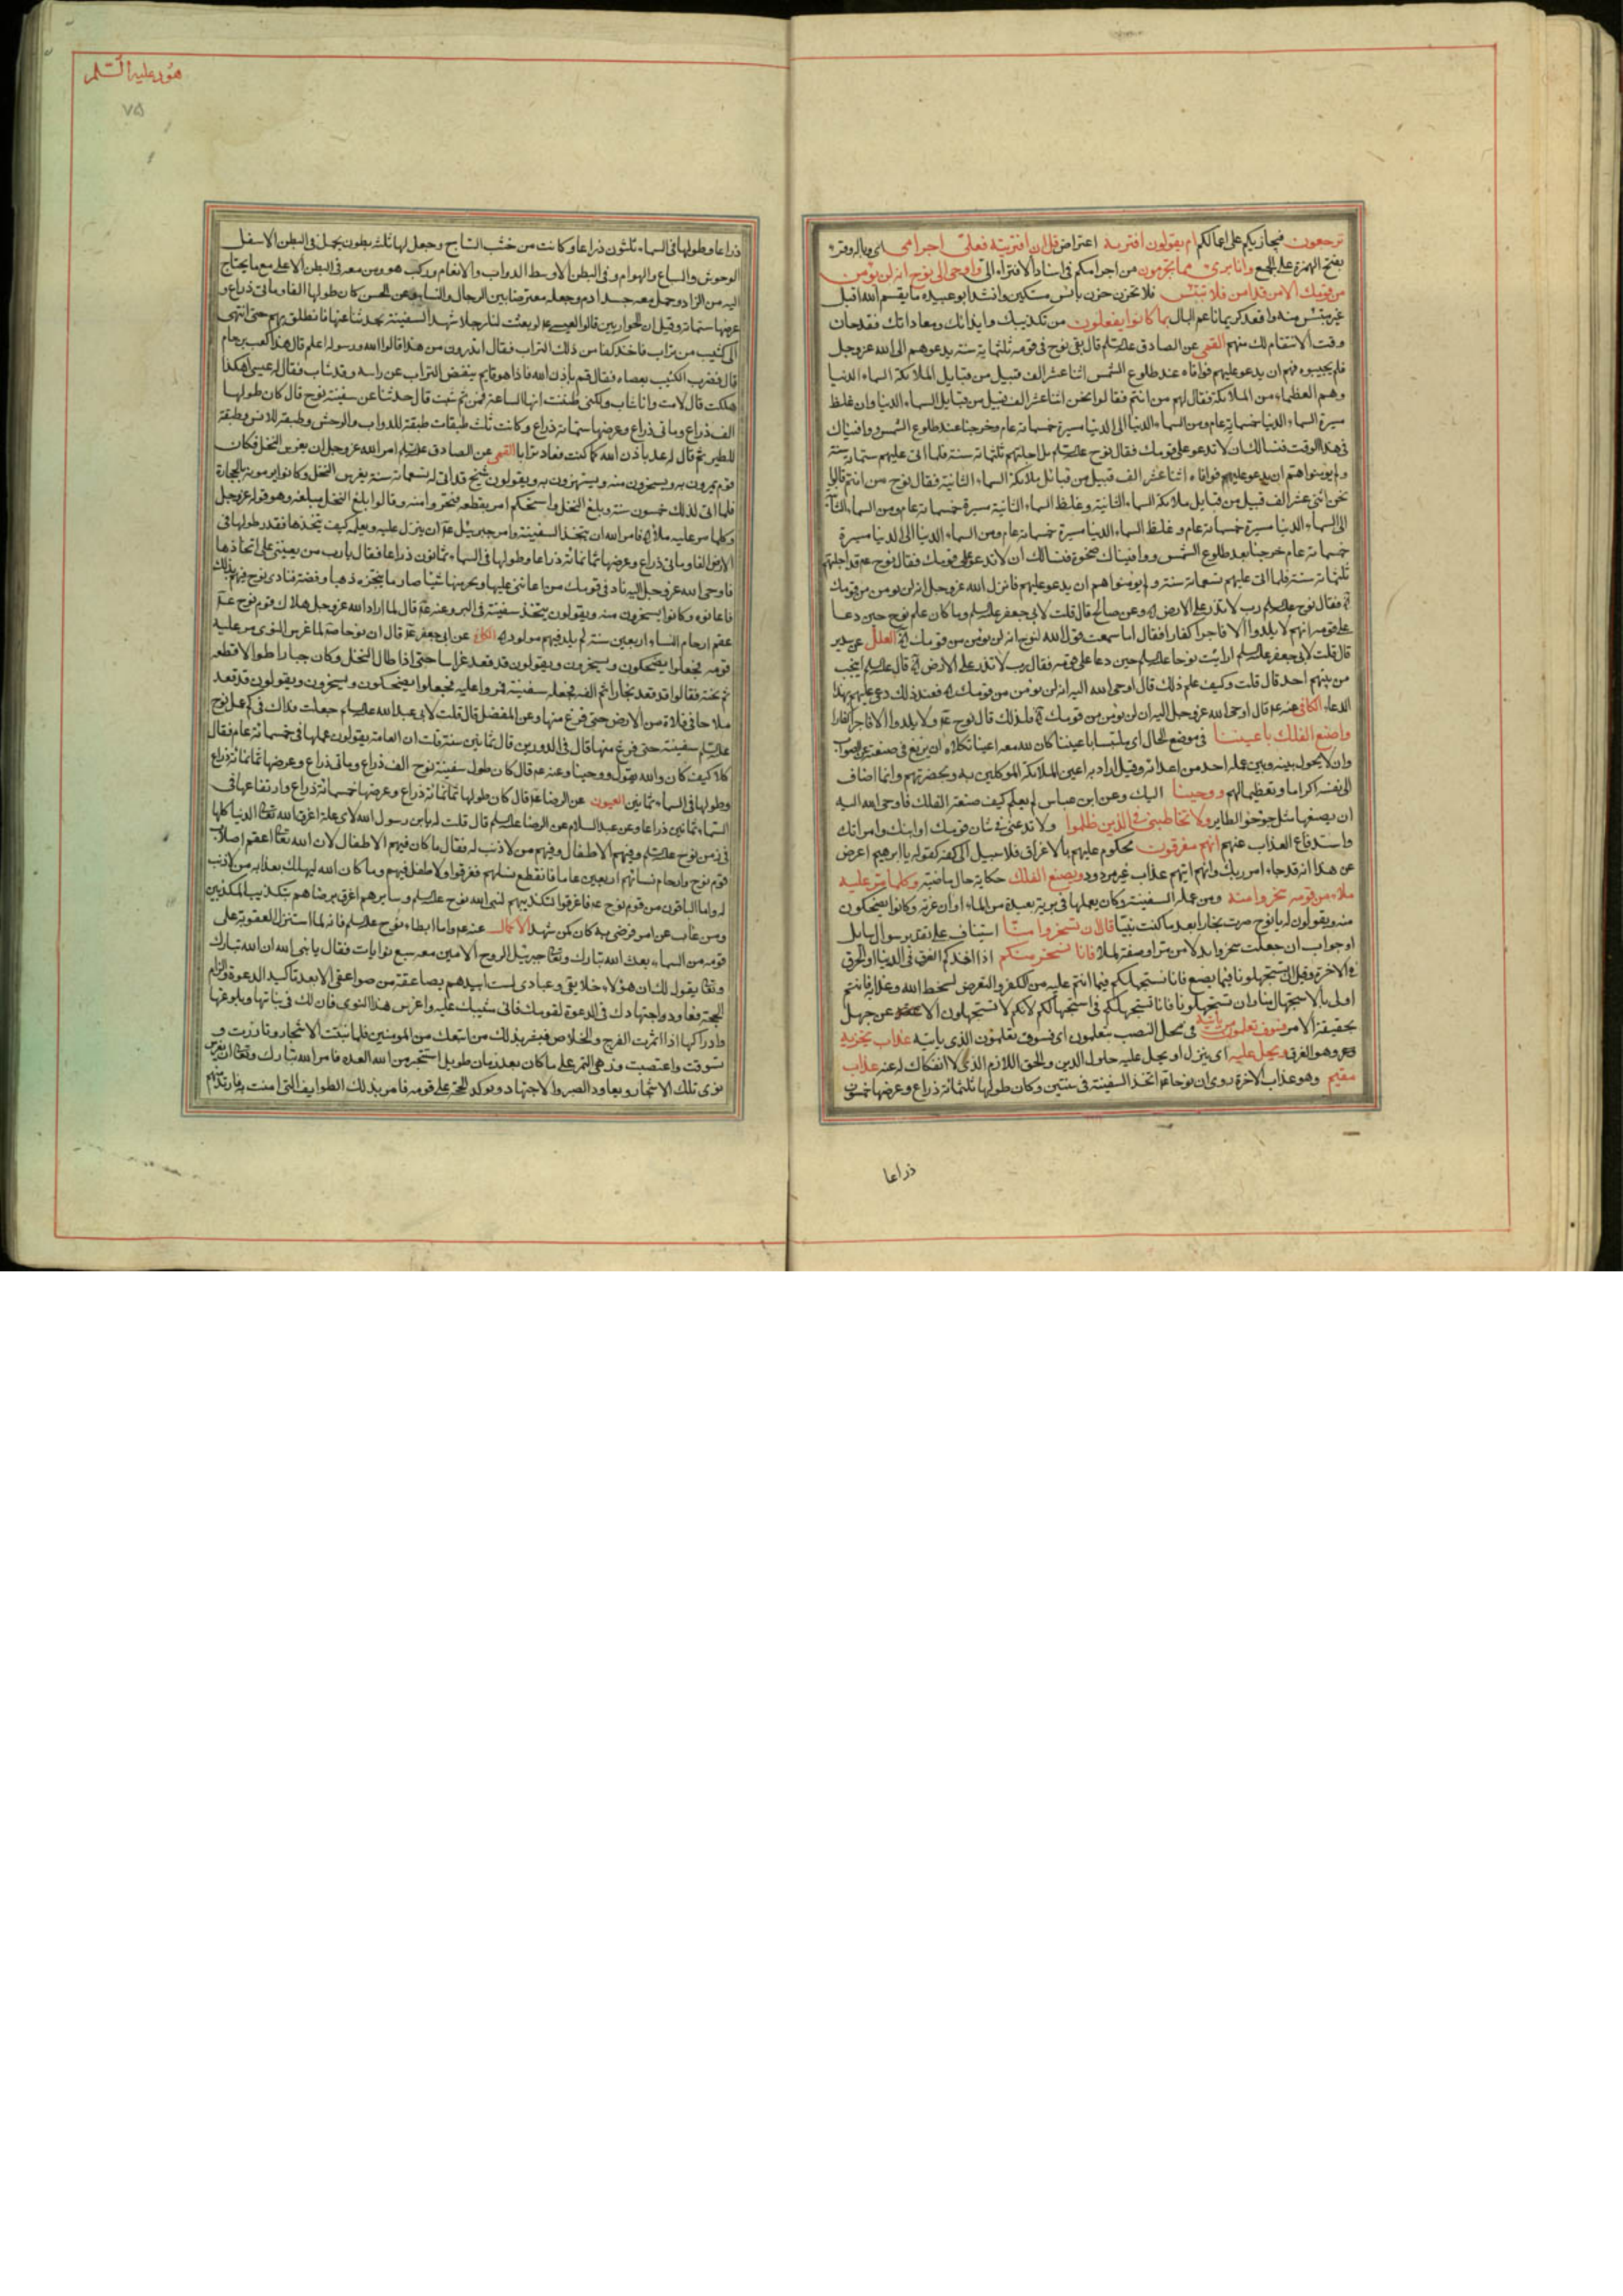 ترجعون فيجازيكم على اعمالكم ام يقولون افتريه اعتراض قل ان افتريته فعلىّ اجرامى اى وباله وقرئ
بفتح الهمزة على الجمع وانا برئ مما تجرمون من اجرامكم فى اسناد الافتراء الىّ واوحى الى نوح انه لن يؤمن
من قومك الا من قد امن فلا تبتئس فلا تحزن حزن بائس مسكين وانشد ابو عبيده ما يقسم الله اقبل
غير مبتئس منه واقعد كريما ناعم البال بما كانوا يفعلون من تكذيبك وايذائك ومعاداتك فقد حان
وقت الانتقام لك منهم القمى عن الصادق عليه السلم قال بقى نوح فى قومه ثلثمائة سنة يدعوهم الى الله عز وجل
فلم يجيبوه فهم ان يدعو عليهم فوافاه عند طلوع الشمس اثنا عشر الف قبيل من قبايل الملائكة السماء الدنيا
وهم العظماء من الملائكة فقال لهم من انتم فقالوا نحن اثنا عشر الف قبيل من قبايل السماء الدنيا وان غلظ
مسيرة السماء الدنيا خمسمائة عام ومن السماء الدنيا الى الدنيا مسيرة خمسمائة عام وخرجنا عند طلوع الشمس ووافيناك
فى هذا الوقت فنسالك ان لا تدعو على قومك فقال نوح عليه السلم بل اجلتهم ثلثمائة سنة فلما اتى عليهم ستمائة سنة
ولم يؤمنوا هم ان يدعو عليهم فوافاه اثنا عشر الف قبيل من قبائل ملائكة السماء الثانية فقال نوح من انتم قالوا
نحن اثنى عشر الف قبيل من قبايل ملائكة السماء الثانية وغلظ السماء الثانية مسيرة خمسمائة عام ومن السماء الثانية
الى السماء الدنيا مسيرة خمسمائة عام وغلظ السماء الدنيا مسيرة خمسمائة عام ومن السماء الدنيا الى الدنيا مسيرة
خمسمائة عام خرجنا بعد طلوع الشمس ووافيناك ضحوة فنسالك ان لا تدعو على قومك فقال نوح عم قد اجلتهم
ثلثمائة سنة فلما اتى عليهم تسعمائة سنة ولم يؤمنوا هم ان يدعو عليهم فانزل الله عز وجل انه لن يؤمن من قومك
فقال نوح عليه السلم رب لا تذر على الارض وعن صالح قال قلت لابى جعفر عليه السلم وما كان علم نوح حين دعا
على قومه انهم لا يلدوا الا فاجرا كفارا فقال اما سمعت قول الله لنوح انه لن يؤمن من قومك العلل عن سدير
قال قلت لابى جعفر عليه السلم ارايت نوحا عليه السلم حين دعا على قومه فقال رب لا تذر على الارض قال عليه السلم
من بينهم احد قال قلت وكيف علم ذلك قال اوحى الله اليه انه لن يؤمن من قومك فعند ذلك دعى عليهم بهذا
الدعاء الكافى عنه عم قال اوحى الله عز وجل اليه ان لن يؤمن من قومك فلذلك قال نوح عم ولا يلدوا الا فاجرا كفارا
واصنع الفلك باعيننا فى موضع الحال اى ملتبسا باعيننا كان لله معه اعينا تكلاه ان يزيغ فى صنعته عن الصواب
وان لا يحول بينه وبين عمله احد من اعدائه وقيل اراد به اعين الملائكة الموكلين به وبحضرتهم وانما اضاف
الى نفسه اكراما وتعظيما لهم ووحينا اليك وعن ابن عباس لم يعلم كيف صنعة الفلك فاوحى الله اليه
ان يصنعها مثل جوجؤ الطاير ولا تخاطبنى فى الذين ظلموا ولا تدعنى فى شان قومك او ابنك وامراتك
واستدفاع العذاب عنهم انهم مغرقون محكوم عليهم بالاغراق فلا سبيل الى كفه كقوله يا ابرهيم اعرض
عن هذا انه قد جاء امر ربك وانهم اتيهم عذاب غير مردود ويصنع الفلك حكاية حال ماضية وكلما مر عليه
ملاء من قومه سخروا منه ومن عمله السفينة وكان يعملها فى برية بعيدة من الماء اوان عزته وكانوا يضحكون
منه ويقولون له يا نوح صرت نجارا بعد ما كنت نبيا قال ان تسخروا منا استيناف على تقدير سوال سايل
او جواب ان جعلت سخروا بدلا من مر او صفة لملاء فانا نسخر منكم اذا اخذكم الغرق فى الدنيا والحرق
فى الاخرة وقيل ان تستجهلونا فيما نصنع فانا نستجهلكم فيما انتم عليه من الكفر والتعرض لسخط الله وعذابه فانتم
اولى بالاستجهال منا وان تستجهلونا فانا نستجهلكم فى استجهالكم لانكم لا تستجهلون الا عن جهل
بحقيقة الامر فسوف تعلمون من ياتيه فى محل النصب بتعلمون اى فسوف تعلمون الذى ياتيه عذاب يخزيه
وهو الغرق ويحل عليه اى ينزل او يحل عليه حلول الدين والحق اللازم الذى لا انفكاك له عنه عذاب
مقيم وهو عذاب الاخرة روى ان نوحا عم اتخذ السفينة فى سنتين وكان طولها ثلثمائة ذراع وعرضها خمسون
ذراعا
هود عليه السلم
٧٥
ذراعا وطولها فى السماء ثلثون ذراعا وكانت من خشب الساج وجعل لها ثلث بطون يحمل فى البطن الاسفل
الوحوش والسباع والهوام وفى البطن الاوسط الدواب والانعام وركب هو ومن معه فى البطن الاعلى مع ما يحتاج
اليه من الزاد وحمل معه جسد ادم وجعله معترضا بين الرجال والنساء وعن الحسن كان طولها الفا وماتى ذراع و
عرضها ستمائة وقيل ان الحواريين قالوا لعيسى عم لو بعثت لنا رجلا شهد السفينة يحدثنا عنها فانطلق بهم حتى انتهى
الى كثيب من تراب فاخذ كفا من ذلك التراب فقال اتدرون من هذا قالوا الله ورسوله اعلم قال هذا كعب بن حام
قال فضرب الكثيب بعصاه فقال قم باذن الله فاذا هو قايم ينفض التراب عن راسه وقد شاب فقال له عيسى اهكذا
هلكت قال لا مت وانا شاب ولكنى ظننت انها الساعة فمن ثم شبت قال حدثنا عن سفينة نوح قال كان طولها
الف ذراع وماتى ذراع وعرضها ستمائة ذراع وكانت ثلث طبقات طبقة للدواب والوحش وطبقة للانس وطبقة
للطير ثم قال له عد باذن الله كما كنت فعاد ترابا القمى عن الصادق عليه السلم امر الله عز وجل ان يغرس النخل فكان
قومه يمرون به ويسخرون منه ويستهزؤن به ويقولون شيخ قد اتى له تسعمائة سنة يغرس النخل وكانوا يرمونه بالحجارة
فلما اتى لذلك خمسون سنة وبلغ النخل واستحكم امر بقطعه فسخروا منه وقالوا بلغ النخل مبلغه وهو قوله عز وجل
وكلما مر عليه ملاء فامره الله ان يتخذ السفينة وامر جبرئيل عم ان ينزل عليه ويعلمه كيف يتخذها فقدر طولها فى
الارض الفا وماتى ذراع وعرضها ثمانمائة ذراعا وطولها فى السماء ثمانون ذراعا فقال يا رب من يعيننى على اتخاذها
فاوحى الله عز وجل اليه ناد فى قومك من اعاننى عليها ونجر منها شيئا صار ما ينجره ذهبا وفضة فنادى نوح فيهم بذلك
فاعانوه وكانوا يسخرون منه ويقولون يتخذ سفينة فى البر وعنه عم قال لما اراد الله عز وجل هلاك قوم نوح عم
عقم ارحام النساء اربعين سنة لم يلد فيهم مولود الكافى عن ابى جعفر عم قال ان نوحا صم لما غرس النوى مر عليه
قومه فجعلوا يضحكون ويسخرون ويقولون قد قعد غراسا حتى اذا طال النخل وكان جبارا طوالا قطعه
ثم نحته فقالوا قد قعد نجارا ثم الفه فجعله سفينة فمروا عليه فجعلوا يضحكون ويسخرون ويقولون قد قعد
ملاحا فى فلاة من الارض حتى فرغ منها وعن المفضل قال قلت لابى عبد الله عليه السلم جعلت فداك فى كم عمل نوح
عليه السلم سفينته حتى فرغ منها قال فى الدورين قال ثمانين سنة قلت ان العامة يقولون عملها فى خمسمائة عام فقال
كلا كيف كان والله يقول ووحينا وعنه عم قال كان طول سفينة نوح الف ذراع وماتى ذراع وعرضها ثمانمائة ذراع
وطولها فى السماء ثمانين العيون عن الرضا عم قال كان طولها ثمانمائة ذراع وعرضها خمسمائة ذراع وارتفاعها فى
السماء ثمانين ذراعا وعن عبد السلام عن الرضا عليه السلم قال قلت له يابن رسول الله لاى علة اغرق الله تعالى الدنيا كلها
فى زمن نوح عليه السلم وفيهم الاطفال وفيهم من لا ذنب له فقال ما كان فيهم الاطفال لان الله تعالى اعقم اصلاب
قوم نوح وارحام نسائهم اربعين عاما فانقطع نسلهم فغرقوا ولا طفل فيهم وما كان الله ليهلك بعذابه من لا ذنب
له واما الباقون من قوم نوح عم فاغرقوا لتكذيبهم لنبى الله نوح عليه السلم وسايرهم اغرق برضاهم بتكذيب المكذبين
ومن غاب عن امر فرضى به كان كمن شهد الاكمال عنه عم واما ابطاء نوح عليه السلم فانه لما استنزل العقوبة على
قومه من السماء بعث الله تبارك وتعالى جبرئيل الروح الامين معه سبع نوايات فقال يا نبى الله ان الله تبارك
وتعالى يقول لك ان هؤلاء خلايقى وعبادى لست ابيدهم بصاعقة من صواعقى الا بعد تاكيد الدعوة والزام
الحجة فعاود اجتهادك فى الدعوة لقومك فانى مثيبك عليه واغرس هذا النوى فان لك فى نباتها وبلوغها
وادراكها اذا اثمرت الفرج والخلاص فبشر بذلك من اتبعك من المومنين فلما نبتت الاشجار وتازرت و
تسوقت واغتصنت وزهى التمر على ما كان بعد زمان طويل استنجز من الله العدة فامر الله تبارك وتعالى ان يغرس
نوى تلك الاشجار ويعاود الصبر والاجتهاد ويوكد الحجة على قومه فامر بذلك الطوايف التى امنت به فارتد منهم